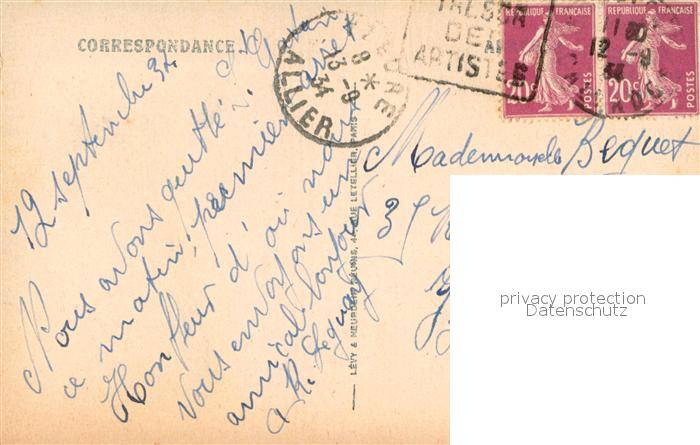 CORRESPONDANCE
12 septembre 34
Nous avons quitté
ce matin, premier arrêt
Honfleur d'où nous
vous envoyons un
amical bonjour
LÉVY & NEURDEIN RÉUNIS, 44, RUE LETELLIER, PARIS
ALLIER
13 -9
34
DE
ARTISTES
RÉPUBLIQUE FRANÇAISE
20c
POSTES
RÉPUBLIQUE FRANÇAISE
20c
POSTES
12 -9
34
Mademoiselle Bequet
privacy protection
Datenschutz